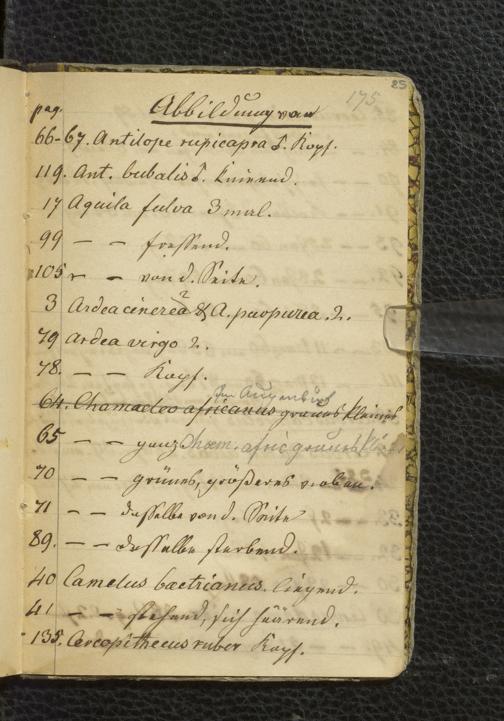 25
175
pag. Abbildung von
66-67. Antilope rupicapra Kopf.
119. Ant. bubalis knieend.
17 Aquila fulva 3 mal.
99 — — fressend.
105 — von d. Seite.
3 Ardea cinerea 2 & A. purpurea. 2.
79 Ardea virgo 2.
78. — — Kopf.
64. Chamaeleo africanus grünes kleines
65 — — ganz Cham. afric grünes
70 — — grünes, größeres v. oben.
71 — — dasselbe von d. Seite
89. — — dasselbe sterbend.
40 Camelus bactrianus. liegend.
41 — — stehend, sich häärend.
135. Cercopithecus ruber Kopf.